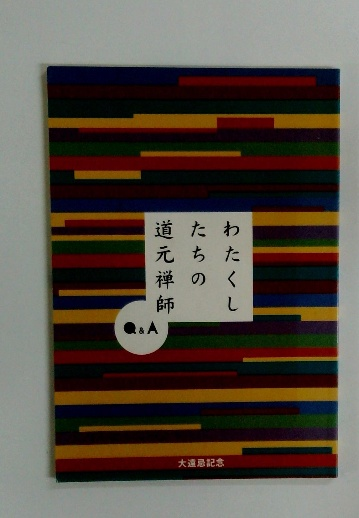 わたくし
たちの
道元禅師
Q&A
大遠忌記念